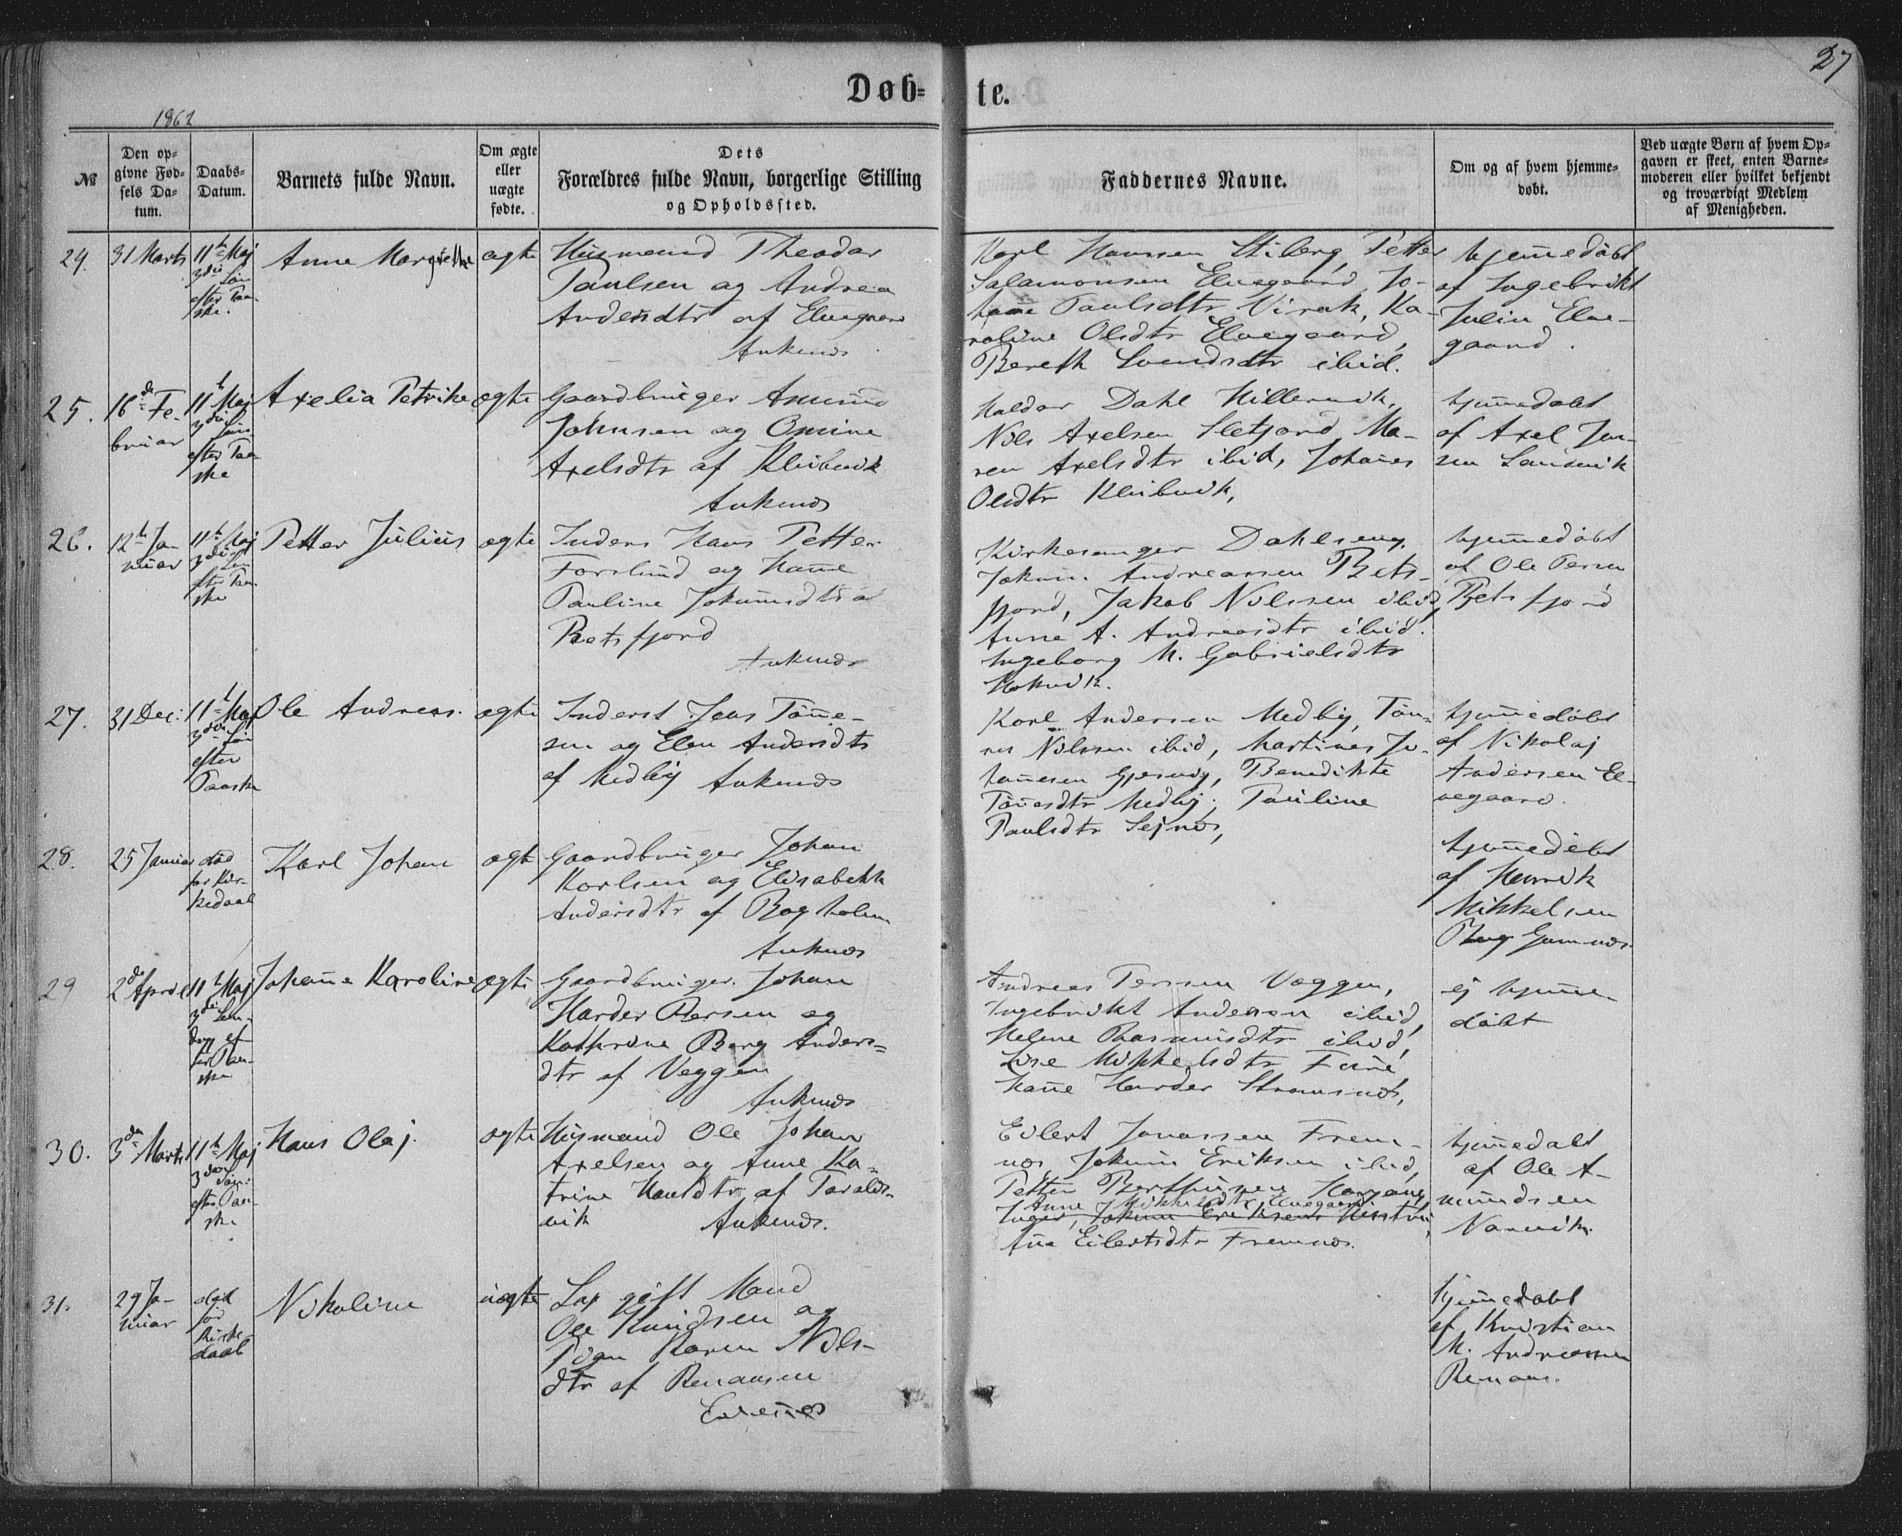 27
Døb= te.
1862
№
Den op-
givne Fød-
sels Da-
tum.
Daabs-
Datum.
Barnets fulde Navn.
Om ægte
eller
uægte
fødte.
Dets
Forældres fulde Navn, borgerlige Stilling
og Opholdssted.
Faddernes Navne.
Om og af hvem hjemme-
døbt.
Ved uægte Børn af hvem Op-
gaven er skeet, enten Barne-
moderen eller hvilket bekjendt
og troværdigt Medlem
af Menigheden.
24.
31 Marts
11te Maj
3die Søn
efter Paa-
ske.
Anne Margrethe
ægte
Husmand Theodor
Paulsen og Andrea
Andersdtr af Elvegaard
Ankenæs
Karl Hanssen Stiberg, Petter
Salamonsen Elvegaard, Jo-
hanne Paulsdtr Virak, Ka-
roline Olsdtr Elvegaard,
Bereth Svendsdtr ibid.
hjemedøbt
af Ingebrikt
Julin Elve-
gaard.
25.
16de Fe-
bruar
11te Maj
3die Søn
efter Paa-
ske
Axelia Petrike
ægte
Gaardbruger Amund
Johnsen og Omine
Axelsdtr af Kleibvik
Ankenæs
Haldor Dahl Hillervik,
Nils Axelsen Sletjord, Ma-
ren Axelsdtr ibid, Johanes
Olsdtr Kleibvik,
hjemedøbt
af Axel Jen-
sen Sandvik
26.
12te Ja-
nuar
11te Maj
3die Søn
efter Paa-
ske
Petter Julius
ægte
Inders Hans Petter
Forslund og Hanne
Pauline Jokumsdtr af
Beisfjord
Ankenæs
Kirkesanger Dahlseng,
Jokum Andreassen Beis-
fjord, Jakob Nilssen ibid,
Anne A. Andreasdtr ibid.
Ingeborg M. Gabrielsdtr
Hokvik.
hjemedøbt
af Ole Persen
Beisfjord
27.
31 Dec:
11te Maj
3die Søn
efter
Paaske
Ole Andreas.
ægte
Inderst Jens Tønne-
sen og Elen Andersdtr
af Medby Ankenæs
Karl Andersen Medby, Tøn-
nes Nilssen ibid, Martines Jo-
hannesen Gjersvig, Benedikte
Tønnesdtr Medby, Pauline
Paulsdtr Sejnæs,
hjemedøbt
af Nikolaj
Andersen El-
vegaard.
28.
25 Januar
død
før Kir-
kedaab
Karl Johan
ægte
Gaardbruger Johan
Karlsen og Elisabeth
Andersdtr af Bogholm
Ankenæs
hjemedøbt
af Henrik
Mikkelsen
29
2de April
11te Maj
3die Søn-
dag ef-
ter Paa-
ske
Johanne Karoline
ægte
Gaardbruger Johan
Harder Persen og
Kathrine Berg Anders-
dtr af Veggen
Ankenæs
Andreas Persen Veggen,
Ingebrikt Anderson ibid,
Helene Rasmusdtr ibid,
Lise Mikkelsdtr
Hanne Harder Strømsnæs,
ej hjemme-
døbt
30.
3die Marts
11te Maj
3die Søn:
efter Paa-
ske
Hans Olaj.
ægte
Husmand Ole Johan
Axelsen og Anne Ka-
trine Hansdtr af Taralds-
vik Ankenæs.
Eilert Jonassen Frem-
næs, Jokum Eriksen ibid,
Petter Berthinsen
Anne Mikkelsdtr Elvegaard.
Inger, Jokum Eriksens Hustru,
Ane Eilertsdtr Fremnæs.
hjemedøbt
af Ole A-
mundsen
Narvik.
31.
29 Ja-
nuar
død
før
Kirke-
daab
Nikoline
uægte
Lap gift Mand
Ole Knudsen og
Pigen Karen Nils-
dtr af Renaasen
Evenæs
hjemedøbt
af Kristian
M. Andreassen
Renaas.